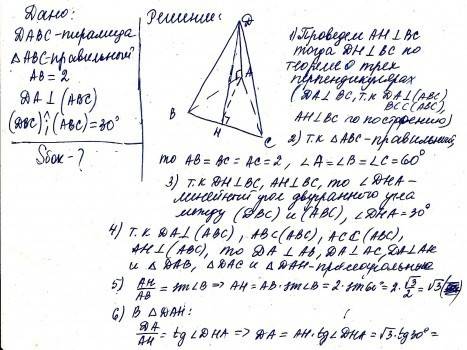 Дано:
DABC-пирамида
△ABC-правильный
AB = 2
DA ⊥ (ABC)
(DBC);^(ABC) = 30°
Sбок - ?
Решение:
D
A
B
H
C
1) Проведем AH ⊥ BC
тогда DH ⊥ BC по
теореме о трех
перпендикулярах
(DA ⊥ BC, т.к DA ⊥ (ABC)
BC⊂(ABC),
AH ⊥ BC по построению)
2) т.к △ABC-правильный,
то AB = BC = AC = 2, ∠A = ∠B = ∠C = 60°
3) т.к DH ⊥ BC, AH ⊥ BC, то ∠DHA-
линейный угол двугранного угла
между (DBC) и (ABC), ∠DHA = 30°
4) т.к. DA ⊥ (ABC), AB⊂(ABC), AC⊂(ABC),
AH⊥(ABC), то DA ⊥ AB, DA ⊥ AC, DA ⊥ AH
и △DAB, △DAC и △DAH-прямоугольные
5) AH/AB = sin∠B => AH = AB · sin∠B = 2 · sin 60° = 2 · √3/2 = √3
6) В △DAH:
DA/AH = tg ∠DHA => DA = AH · tg ∠DHA = √3 · tg 30° =